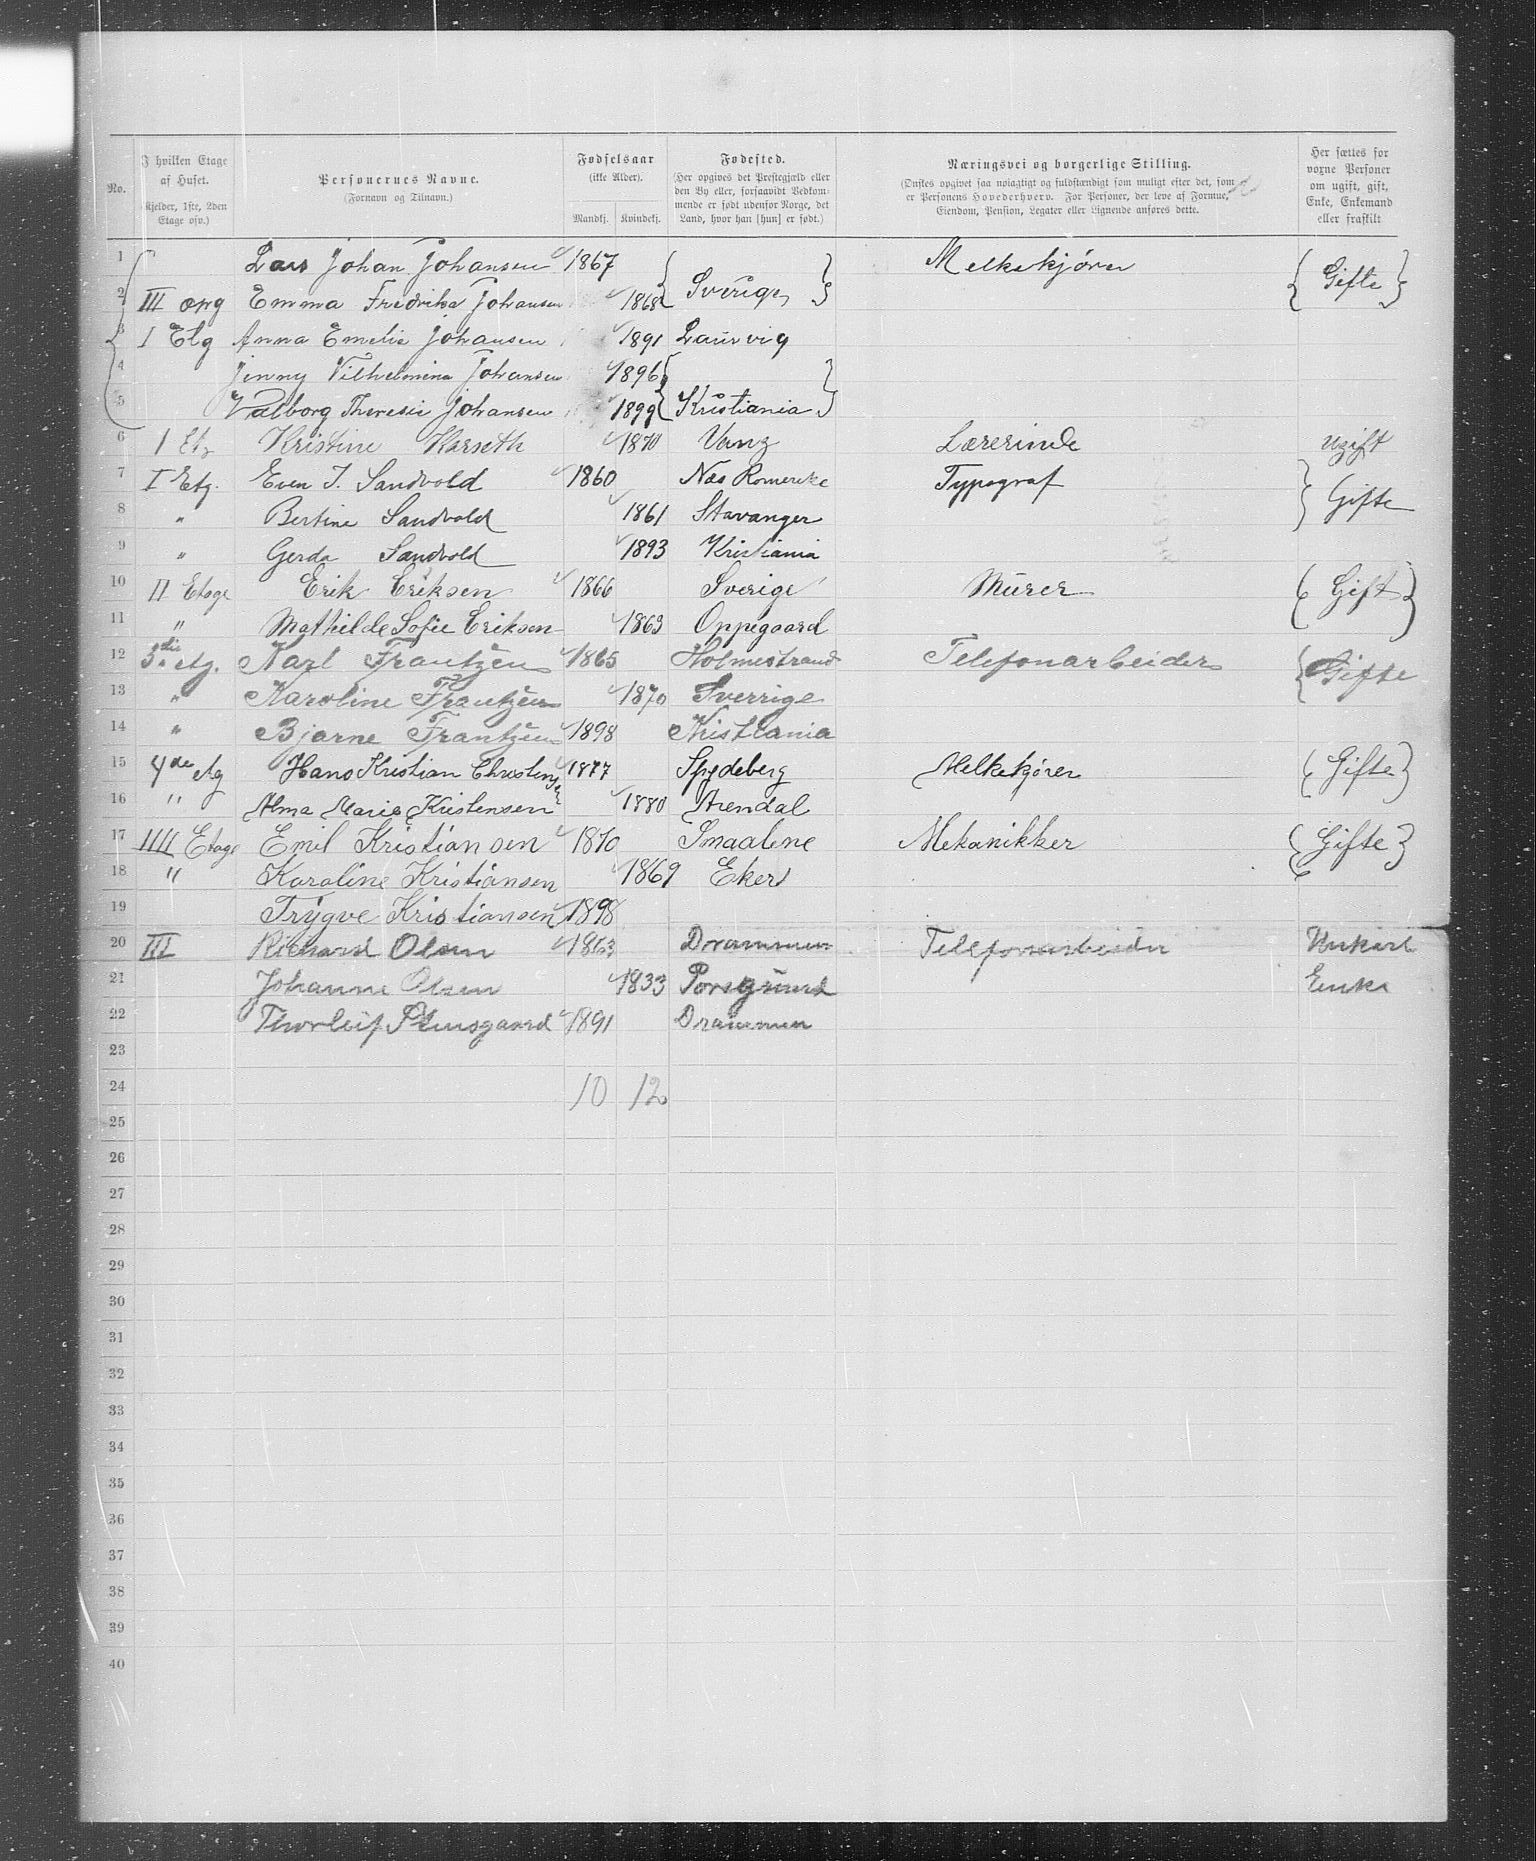 No.
I hvilken Etage af Huset. (Kjelder, 1ste, 2den Etage osv.)
Personernes Navne. (Fornavn og Tilnavn.)
Fødselsaar (ikke Alder). Mandkj. Kvindekj.
Fødested. (Her opgives det Prestegjæld eller den By eller, forsaavidt Vedkommende er født udenfor Norge, det Land, hvor han [hun] er født.)
Næringsvei og borgerlige Stilling. (Ønskes opgivet saa nøiagtigt og fuldstændigt som muligt efter det, som er Personens Hovederhverv. For Personer, der leve af Formue, Eiendom, Pension, Legater eller Lignende anføres dette.
Her sættes for voxne Personer om ugift, gift, Enke, Enkemand eller fraskilt
1 Lars Johan Johansen 1867 Sverige Melkekjører Gifte
2 III opg Emma Fredrika Johansen 1868
3 I Etg Anna Emelie Johansen 1891 Laurvig
4 Jenny Vilhelmina Johansen 1896
5 Valborg Theresie Johansen 1899 Kristiania
6 I Etg Kristine Karseth 1870 Vang Lærerinde Ugift
7 I Etg. Even J. Sandvold 1860 Næs Romerike Typograf Gifte
8 " Bertine Sandvold 1861 Stavanger
9 " Gerda Sandvold 1893 Kristiania
10 II Etage Erik Eriksen 1866 Sverige Murer Gift
11 " Mathilde Sofie Eriksen 1863 Oppegaard
12 3die etg. Karl Frantzen 1865 Holmestrand Telefonarbeider Gifte
13 " Karoline Frantzen 1870 Sverrige
14 " Bjarne Frantzen 1898 Kristiania
15 4de etg Hans Kristian Christens 1877 Spydeberg Melkekjører Gifte
16 " Alma Marie Kristensen 1880 Arendal
17 IIII Etage Emil Kristiansen 1870 Smaalene Mekanikker Gifte
18 " Karoline Kristiansen 1869 Eker
19 Trygve Kristiansen 1898
20 III Richard Olsen 1863 Drammen Telefonarbeider
21 Johanne Olsen 1833 Porsgrund Enke
22 Thorleif 1891 Drammen
23
24 10 12
25
26
27
28
29
30
31
32
33
34
35
36
37
38
39
40